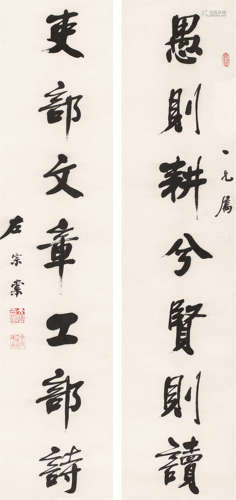 愚則耕兮賢則讀
吏部文章工部詩
左宗棠